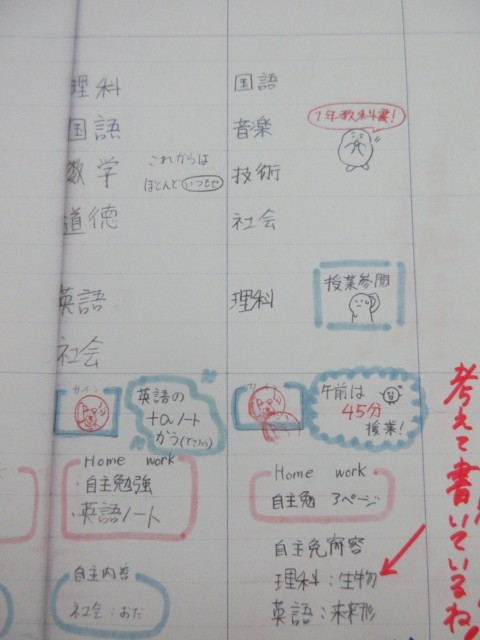 理科
国語
数学
これからは
ほとんど
道徳
英語
社会
サイン
英語の
+αノート
かう
Home work
・自主勉強
・英語ノート
自主内容
社会:おた
国語
音楽
1年教科書!
技術
社会
理科
授業参観
午前は
45分
授業!
Home work
自主勉 3ページ
自主勉内容
理科:生物
英語:未来形
考えて書いているね!